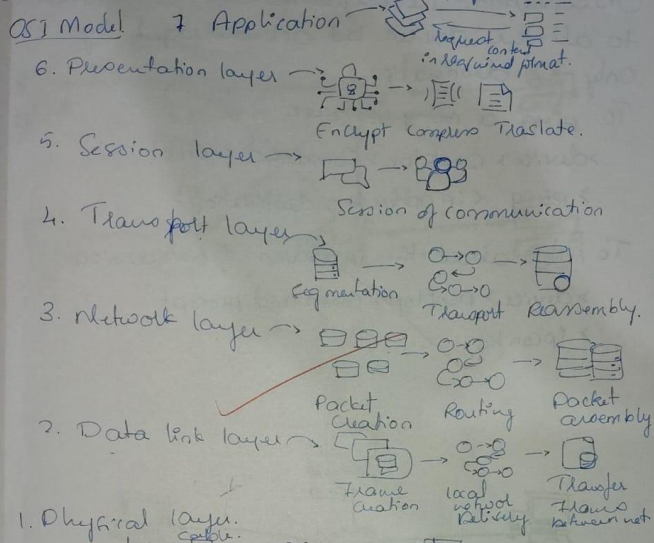 OSI Model 7 Application
request content
in required format.
6. Presentation layer
8
Encrypt Compress Traslate.
5. Session layer
Session of communication
4. Transport layer
Segmentation Transport Reassembly.
3. Network layer
Packet Creation Routing Packet assembly
2. Data link layer
Frame Creation local network Delivery Transfer Frames between net
1. Physical layer.